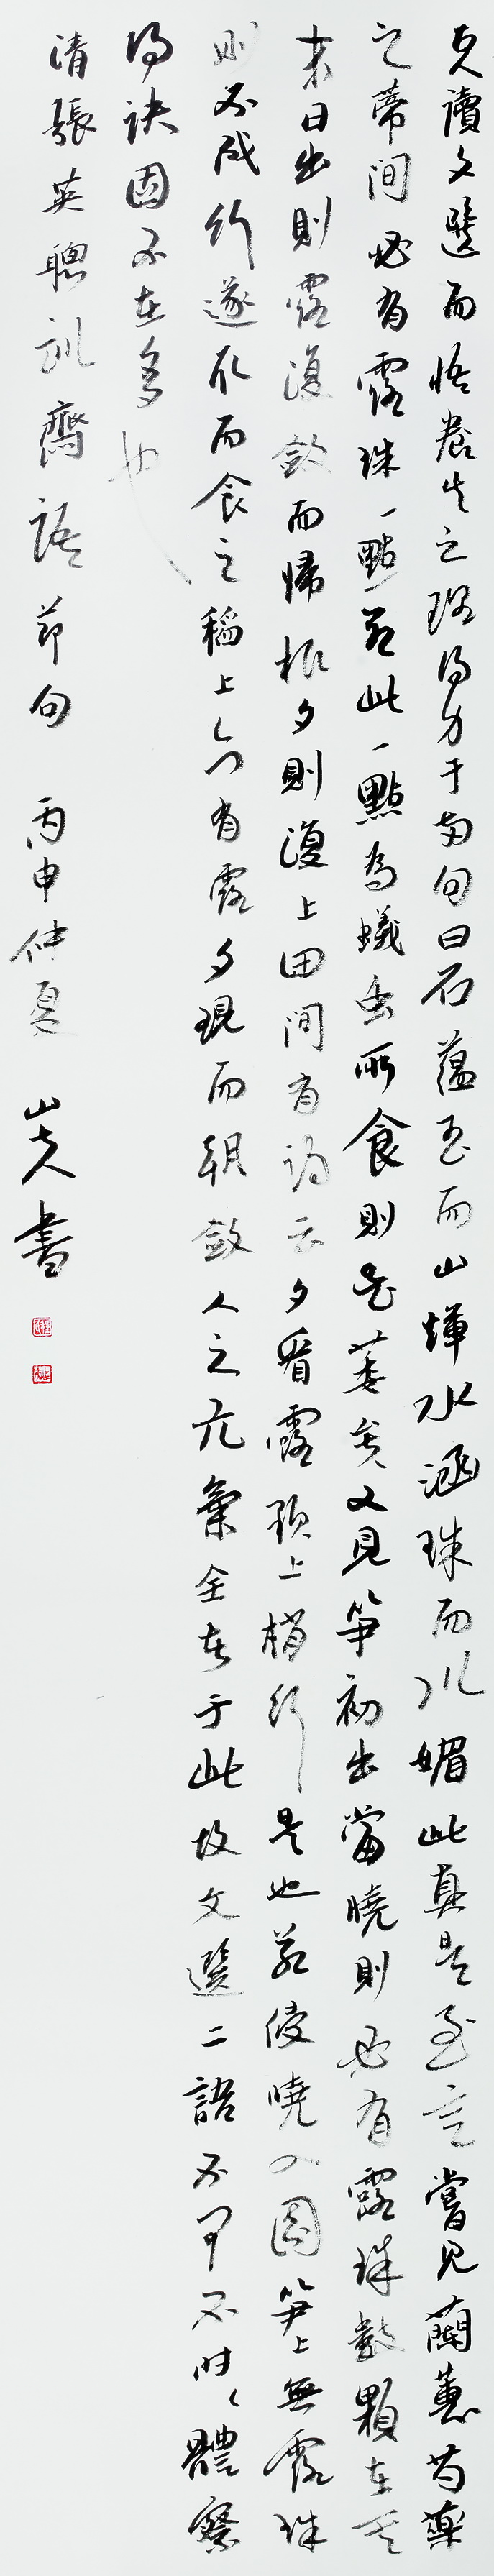 克讀文選而悟養生之理得力于兩句曰石蘊玉而山輝水涵珠而川媚此真是至言嘗見蘭蕙芍藥
之蒂間必有露珠一點若此一點為蟻虫所食則花萎矣又見筍初出當曉則必有露珠數顆在其
末日出則露復斂而歸根夕則復上田間有詩云夕看露顆上梢行是也若侵曉入園筍上無露珠
則不成竹遂取而食之稻上亦有露夕現而朝斂人之元氣全在于此故文選二語不可不時〻體察
得訣固不在多也
清張英聰訓齋語節句 丙申仲夏 山人書